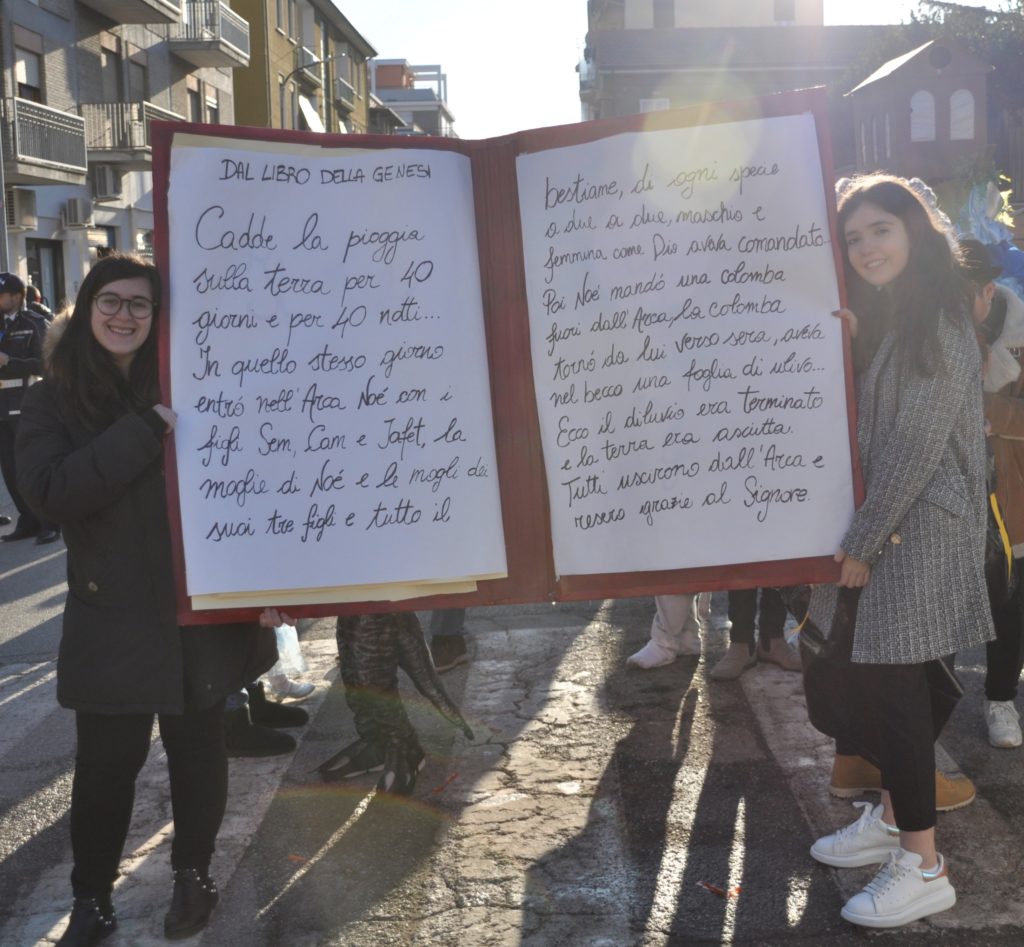 DAL LIBRO DELLA GENESI
Cadde la pioggia
sulla terra per 40
giorni e per 40 notti...
In quello stesso giorno
entró nell'Arca Noé con i
figli Sem, Cam e Jafet, la
moglie di Noé e le mogli dei
suoi tre figli e tutto il
bestiame, di ogni specie
a due a due, maschio e
femmina come Dio aveva comandato.
Poi Noé mandó una colomba
fuori dall'Arca, la colomba
tornó da lui verso sera, aveva
nel becco una foglia di ulivo...
Ecco il diluvio era terminato
e la terra era asciutta.
Tutti uscirono dall'Arca e
resero grazie al Signore.